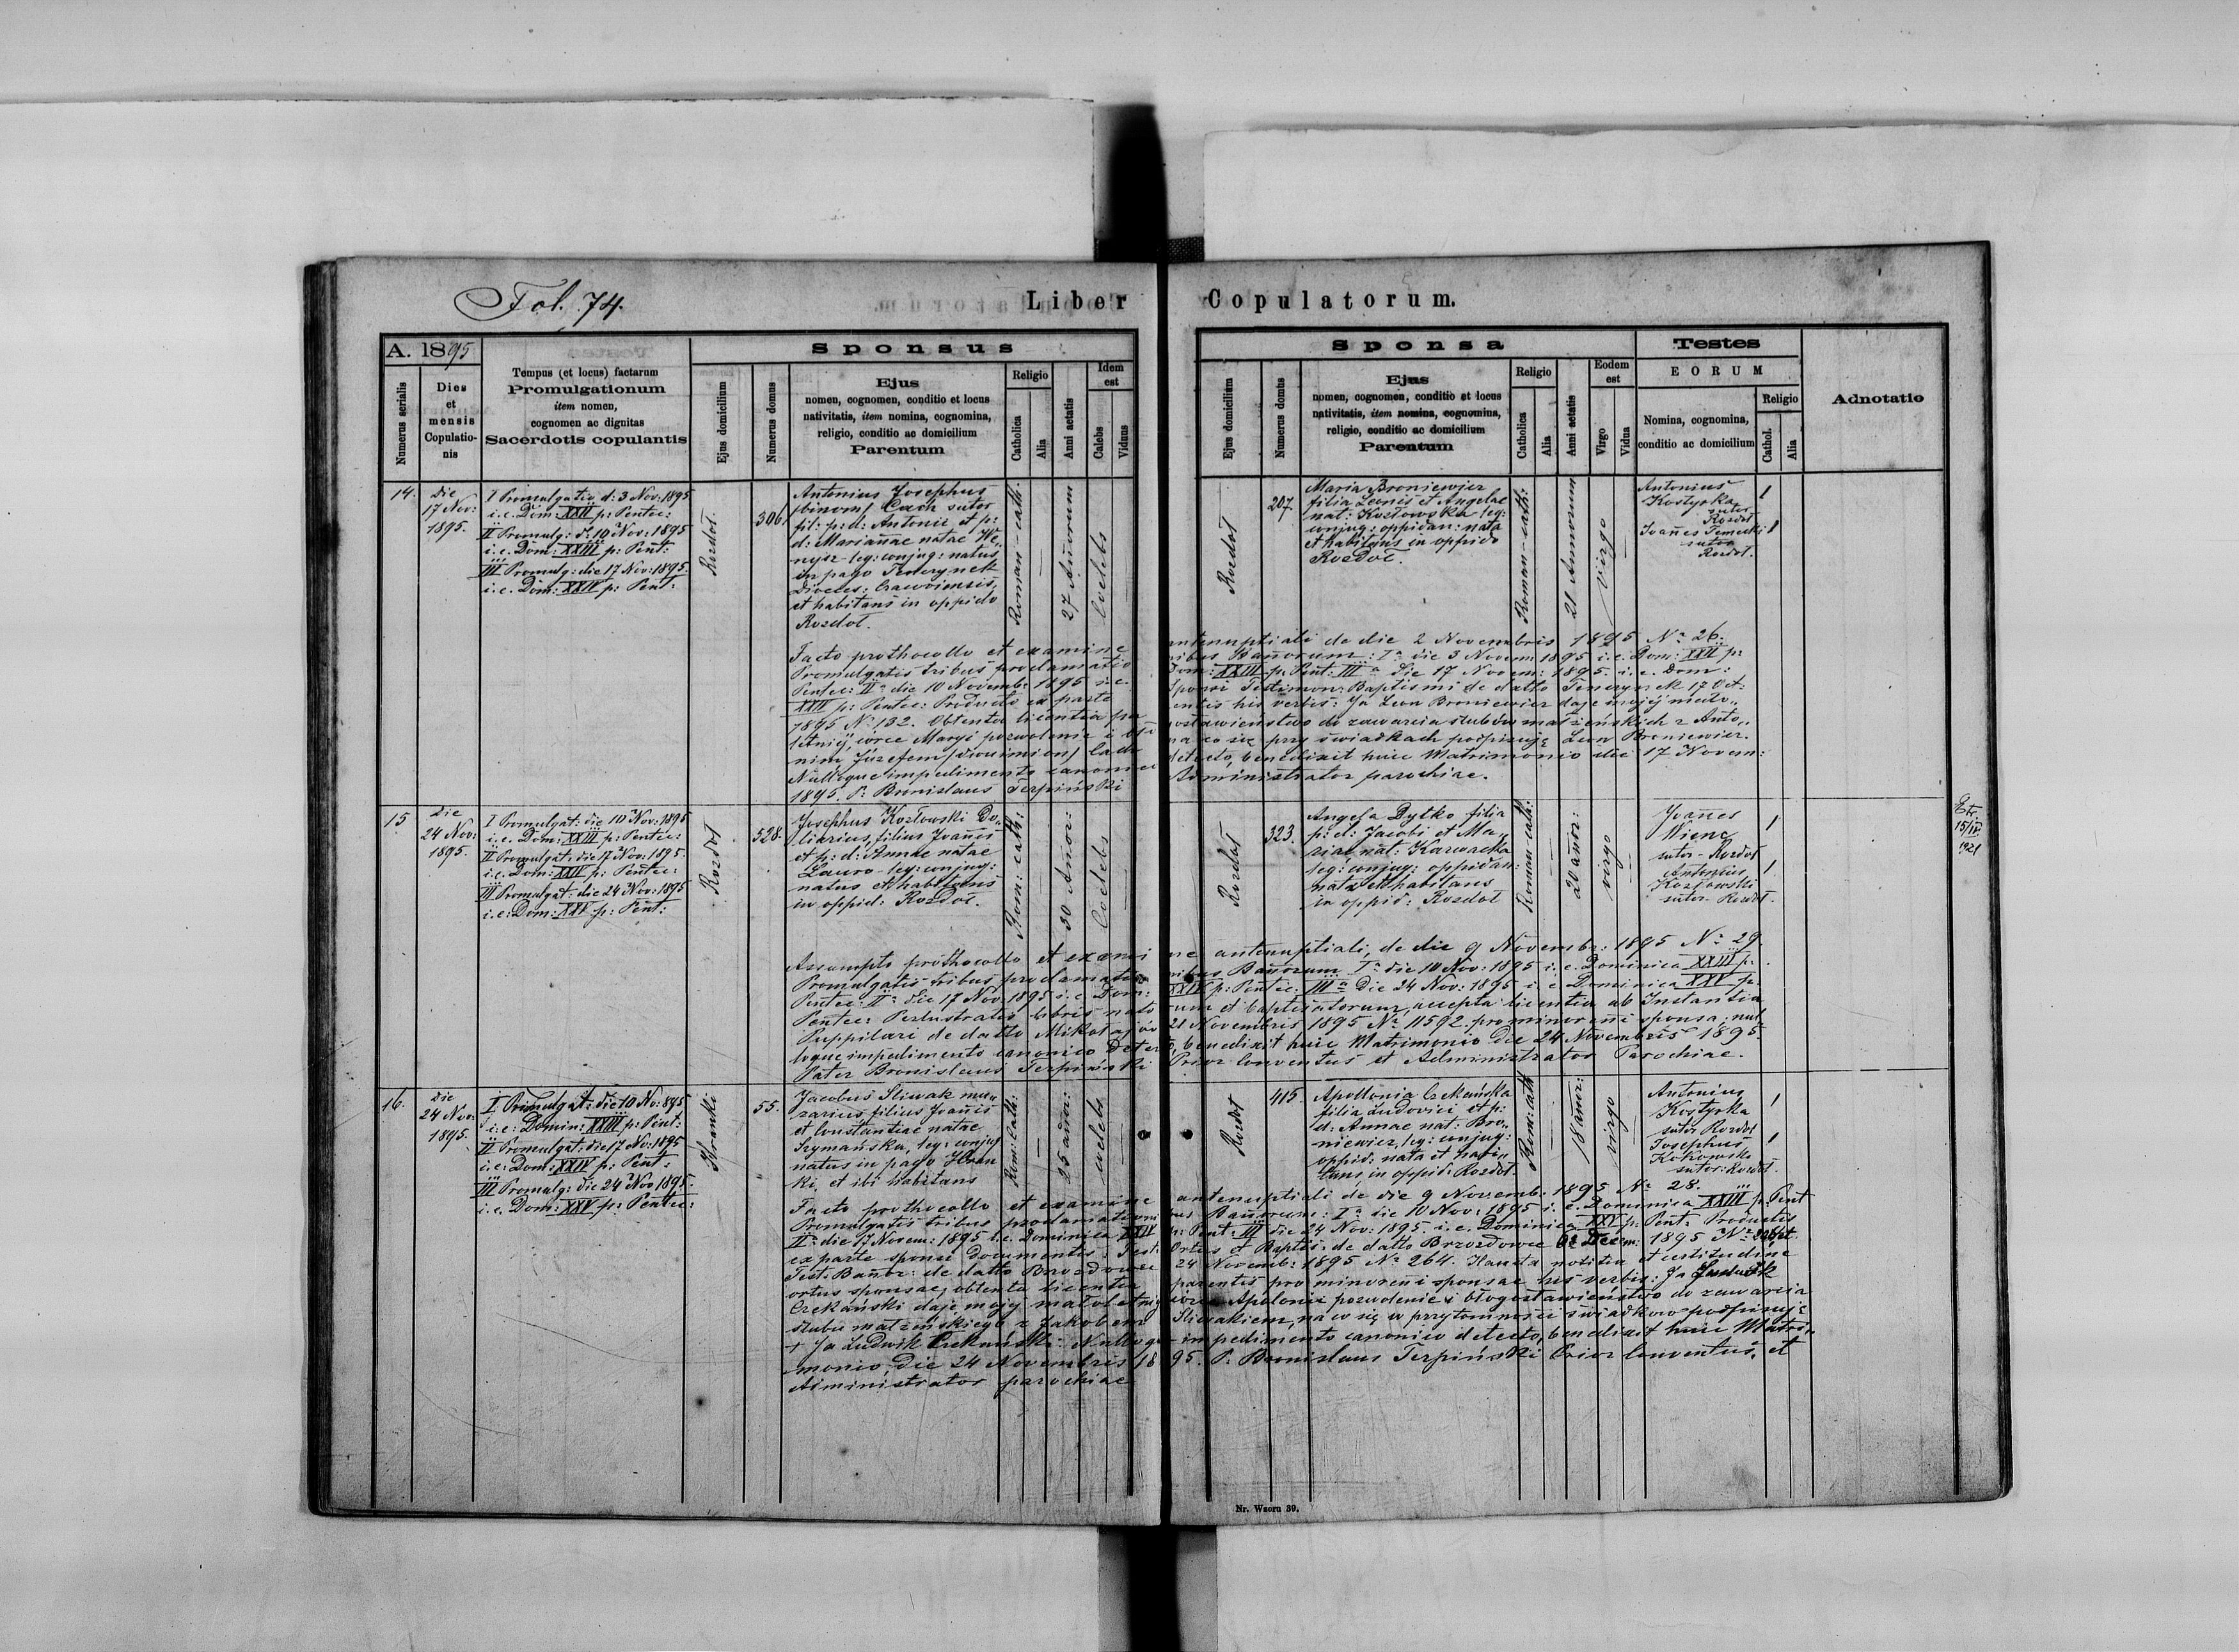 Fol. 74.
Liber Copulatorum.
A. 1895
Numerus serialis
Dies
et
mensis
Copulatio-
nis
Tempus (et locus) factarum
Promulgationum
item nomen,
cognomen ac dignitas
Sacerdotis copulantis
Sponsus
Ejus domicilium
Numerus domus
Ejus
nomen, cognomen, conditio et locus
nativitatis, item nomina, cognomina,
religio, conditio ac domicilium
Parentum
Religio
Catholica
Alia
Anni aetatis
Idem
est
Calebs
Viduus
Sponsa
Ejus domicilium
Numerus domus
Ejus
nomen, cognomen, conditio et locus
nativitatis, item nomina, cognomina,
religio, conditio ac domicilium
Parentum
Religio
Catholica
Alia
Anni aetatis
Eodem
est
Virgo
Vidua
Testes
EORUM
Nomina, cognomina,
conditio ac domicilium
Religio
Cathol.
Alia
Adnotatio
14.
Die
17 Nov:
1895.
I Promulgatio d: 3 Nov: 1895
i.e. Dom: XXII p: Pentec:
II Promulg: d: 10 Nov: 1895
i.e. Dom: XXIII p: Pent:
III Promulg: die 17 Nov: 1895.
i.e. Dom: XXIV p: Pent:
Rozdoł.
306
Antonius Josephus
/binom/ Cach sutor
fil: p: d: Antonii et p:
d: Mariañae natae We„
leg: conjug: natus
in pago Tenczynek
Dioeces: Cracoviensis,
et habitans in oppido
Rozdoł.
Roman-cath.
27 Añorum
Coelebs
Rozdoł
207
Maria Broniewicz
filia Leonis et Angelae
nat: Kozłowska leg:
conjug: oppidan: nata
et habitans in oppido
Rozdoł.
Roman-cath:
21 Annorum
Virgo
Antonius
Kostyrka
sutor
Rozdoł
Joañes
sutor
Rozdoł.
Facto prothocollo et examine antenuptiali de die 2 Novembris 1895 Nº 26.
Promulgatis tribus proclamationibus Bañorum: Iª die 3 Novem: 1895 i.e. Dom: XXII p:
Pentec: IIª die 10 Novemb: 1895 i.e. Dom: XXIII p: Pent: IIIª die 17 Novem: 1895. i.e. Dom:
XXIV p: Pentec: Producto ex parte Sponsi Testimon: Baptismi de datto Tenczynek 17 Oct:
1895 Nº 132. Obtenta licentia parentis his verbis: Ja Leon Broniewicz daję mojéj mało„
letniéj córce Maryi pozwolenie i błogosławieństwo do zawarcia ślubów małżeńskich z Anto„
nim Józefem /dwuimion/ Cach na co się przy świadkach podpisuję Leon Broniewicz.
Nulloque impedimento canonico detecto, benedixit huic Matrimonio die 17 Novem:
1895. P: Bronislaus Terpiński Administrator parochiae.
15
Die
24 Nov:
1895.
I Promulgat: die 10 Nov: 1895
i.e. Dom: XXIII p: Pentec:
II Promulgat: die 17 Nov: 1895.
i.e. Dom: XXIV p: Pentec:
III Promulgat: die 24 Nov: 1895
i.e: Dom: XXV p: Pent:
Rozdoł
528.
Josephus Kozłowski Do„
liarius, filius Joañis
et p: d: Annae natae
Lauro leg: conjug:
natus et habitans
in oppid: Rozdoł.
Rom: cath:
30 Añor:
Coelebs
Rozdoł
323.
Angela Dytko filia
p: d: Jacobi et Ma„
riae nat: Karwacka
leg: conjug: oppidan:
nata et habitans
in oppid: Rozdoł
Roman-cath:
20 añor:
virgo
Joañes
Wienc
sutor - Rozdoł
Antonius
Kozłowski
sutor Rozdoł.
15/IV
1921
Assumpto prothocollo et examine antenuptiali, de die 9 Novembr: 1895 Nº 29.
Promulgatis tribus proclamationibus Bañorum Iª die 10 Nov: 1895 i.e. Dominica XXIII p:
Pentec: IIª die 17 Nov: 1895 i.e. Dom: XXIV p: Pentec: IIIª die 24 Nov: 1895 i e Dominica XXV p:
Pentec: Perlustratis libris natorum et baptisatorum, accepta licentia ab Instantia
Puppilari de datto Mikołajów 21 Novembris 1895 Nº 11592. pro minoreñi sponsa; nul„
loque impedimento canonico detecto, benedixit huic Matrimonio die 24 Novembris 1895.
Pater Bronislaus Terpiński Prior Conventus et Administrator Parochiae.
16.
die
24 Nov:
1895.
I Promulgat: die 10 Nov: 895
i.e: Domin: XXIII p: Pent:
II Promulgat: die 17 Nov: 1895
i.e: Dom: XXIV p: Pent:
III Promulg: die 24 Nov 1895.
i.e. Dom: XXV p: Pentec:
Hranki
55.
Jacobus Sliwak mu„
rarius filius Joañis
et Constantiae natae
Szymańska, leg: conjug
natus in pago Hran
ki, et ibi habitans
Rom: Cath:
25 añor:
coelebs
Rozdoł
415
Apollonia Czekańska
filia Ludovici et p:
d: Annae nat: Bro„
niewicz, leg: conjug:
oppid: nata et habi„
tans, in oppid: Rozdoł
Rom: cath
añor:
virgo
Antonius
Kostyrka
sutor Rozdoł
Josephus
sutor: Rozdoł.
Facto prothocollo et examine antenuptiali de die 9 Novemb: 1895 Nº 28.
Promulgatis tribus proclamationibus Bañorum: Iª die 10 Nov: 1895 i.e. Dominica XXIII p: Pent
IIª die 17 Novem: 1895 i.e. Dominica XXIV p: Pent: III die 24 Nov: 1895. i.e. Dominica XXV p: Pent: Productis
ex parte sponsi documentis: Test: Ortus et Baptis: de datto Brzozdowce 1895 Nº
Test: Bañor: de datto Brozdowce 24 Novemb: 1895 Nº 264. Hausta notitia et certitudine
ortus sponsae, obtenta licentia parentis pro minoreñi sponsae his verbis: Ja Ludwik
Czekański daję mojej małoletniej córce Apolonii pozwolenie i błogosławieństwo do zawarcia
ślubu małżeńskiego z Jakobem Sliwakiem, na co się w przytomności świadków podpisuję
+ Ja Ludwik Czekański. Nulloque impedimento canonico detecto, benedixit huic Matri„
monio die 24 Novembris 1895. P: Bronislaus Terpiński Prior Conventus, et
Administrator parochiae
Nr. Wzoru 39.